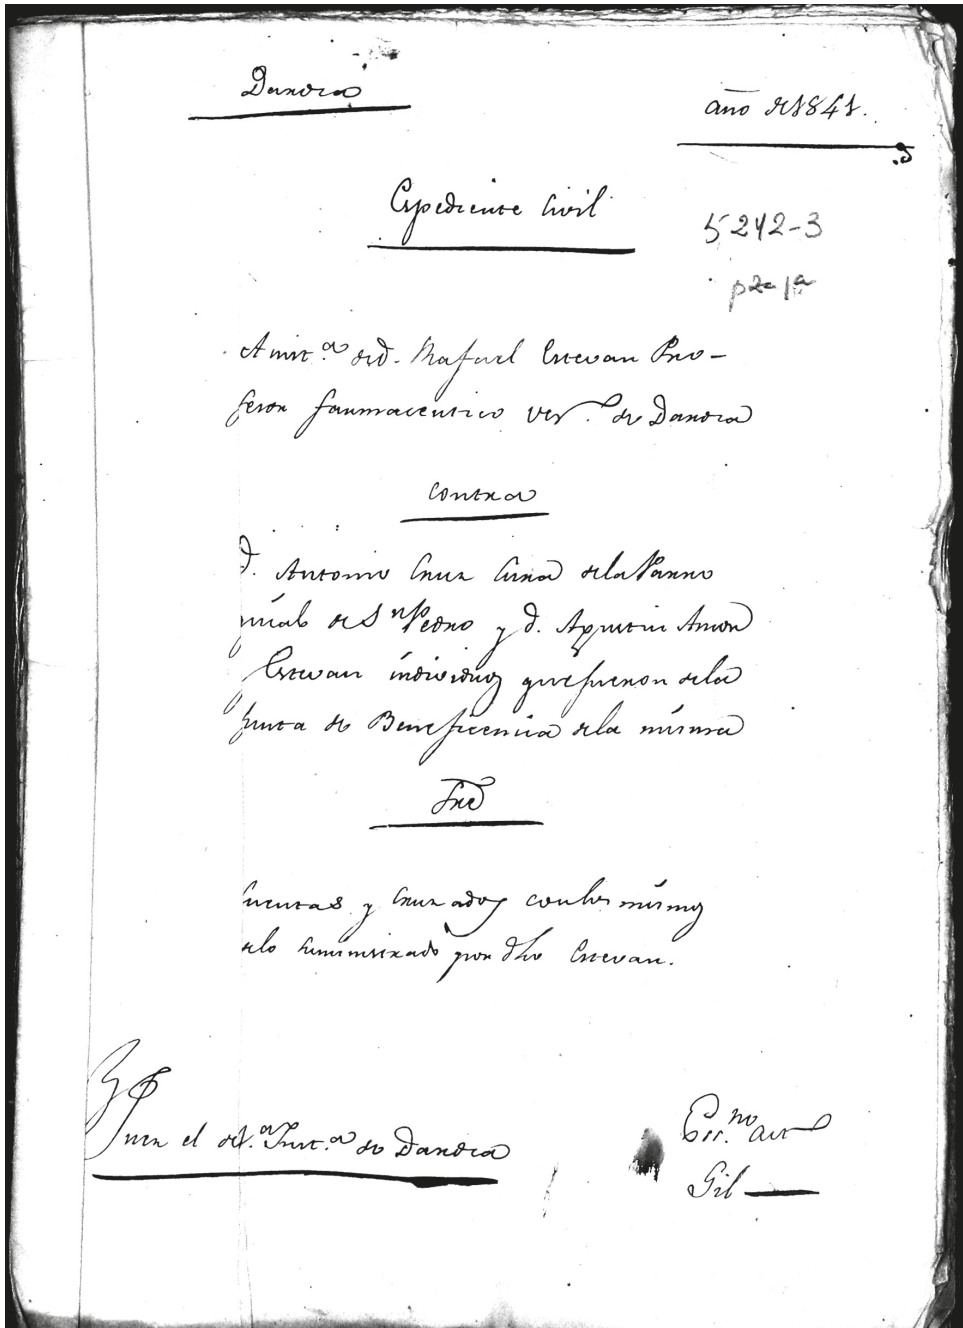 Daroca
año de 1841.
Expediente Civil
5242-3
pza 1ª
A inst.ª de d. Rafael Estevan Pro-
fesor farmaceutico vez.º de Daroca
contra
d. Antonio Cruz Cura de la Parro
quial de Sn Pedro y d. Agustin Amor
Estevan individuos que fueron de la
Junta de Beneficencia de la misma
Sre
Cuentas y cruzados con los mismos
de lo suministrado por dho Estevan.
Juez el de 1.ª Inst.ª de Daroca
Ess.no act
Gil